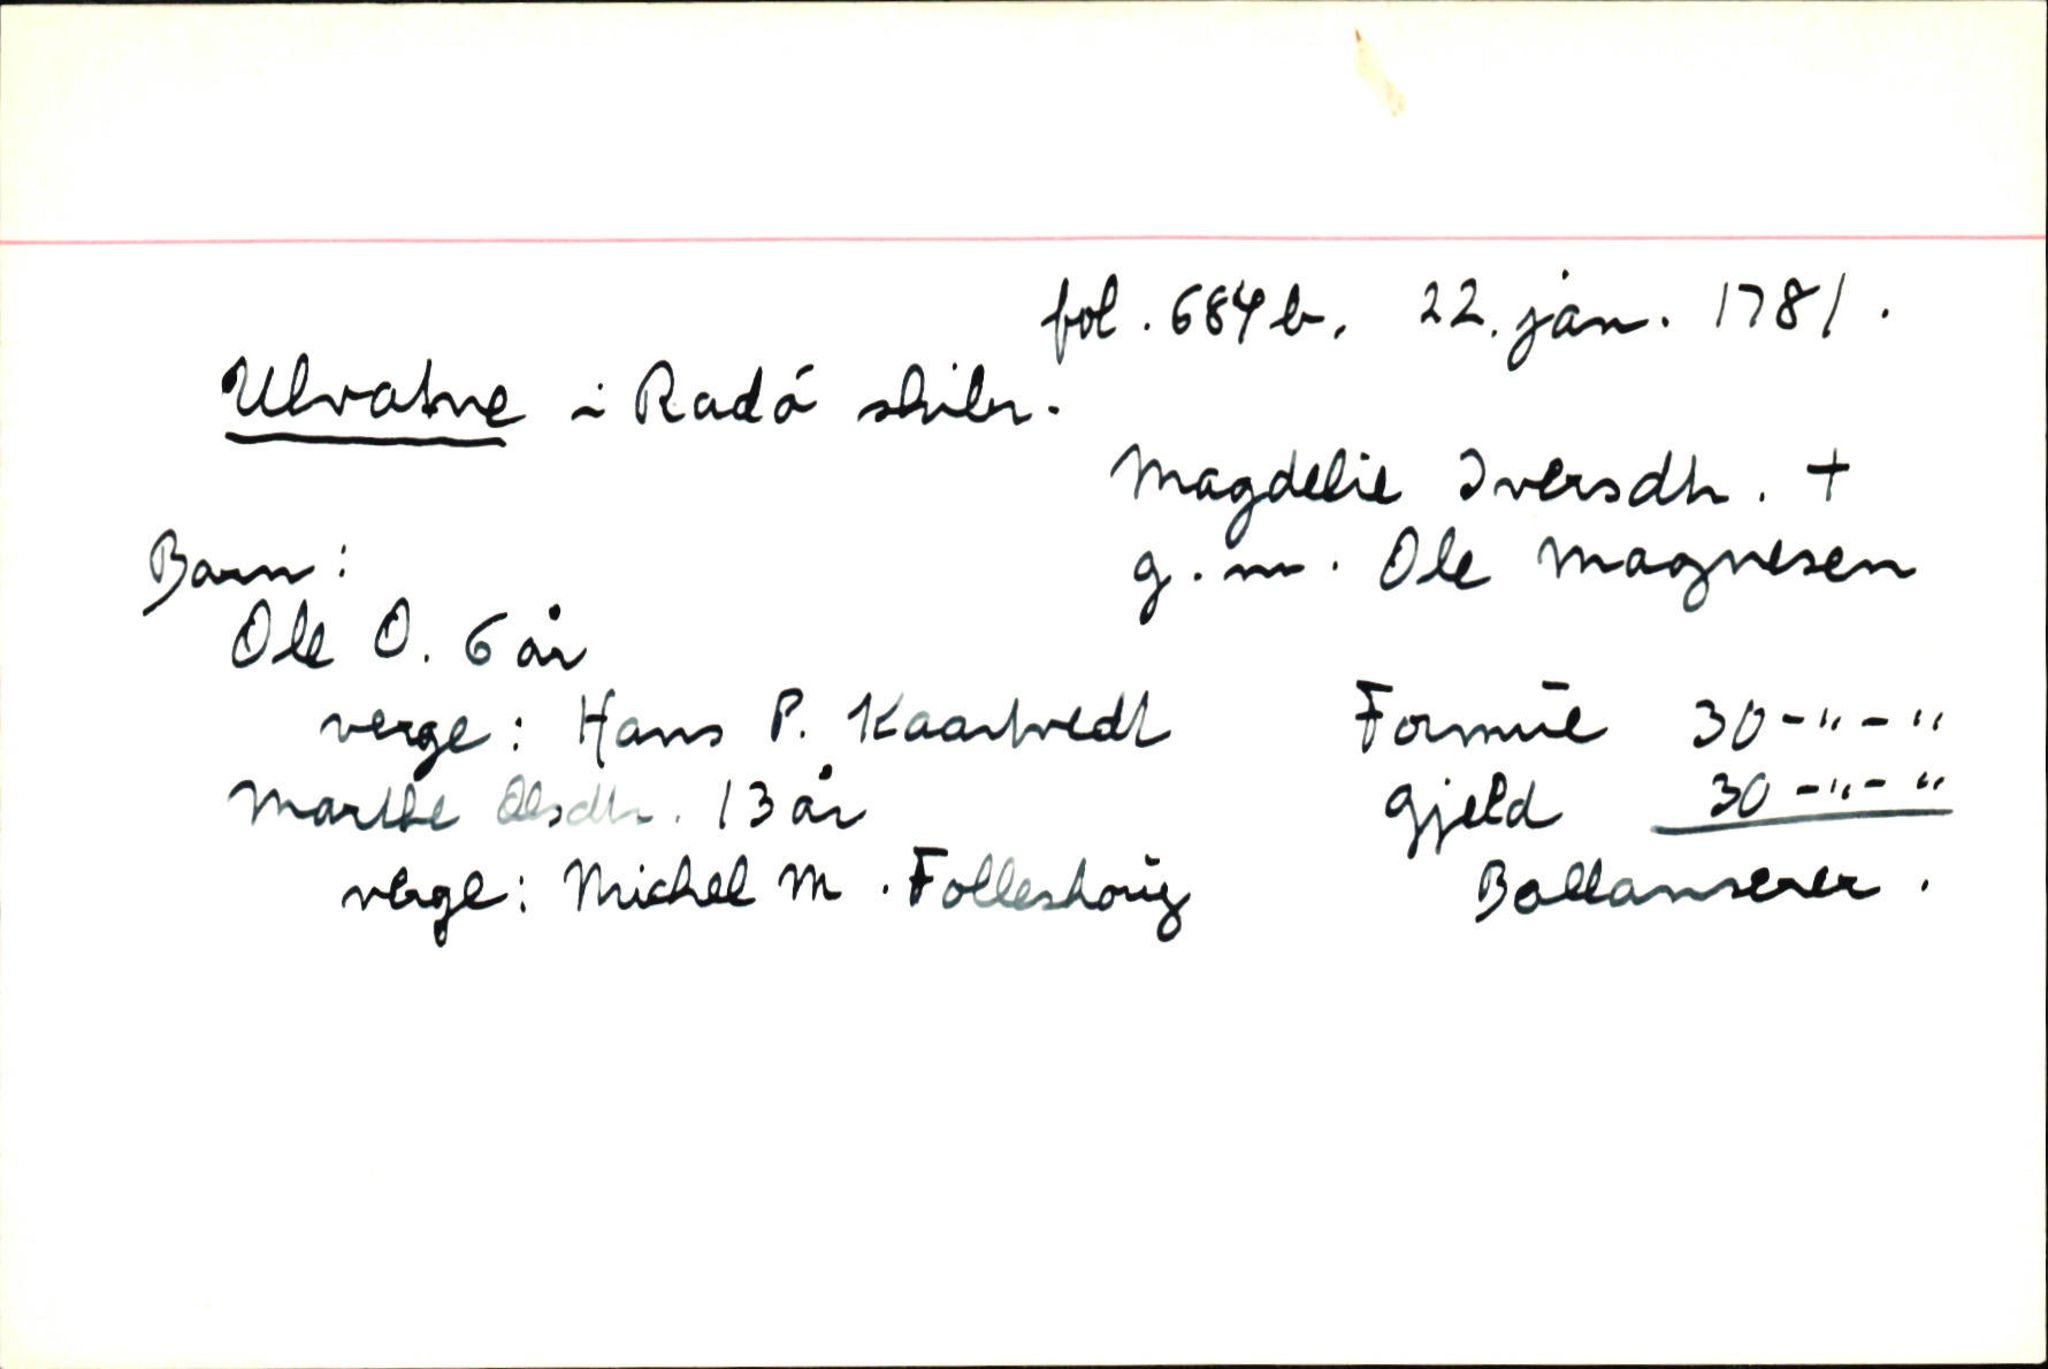 fol. 684 b, 22. jan. 1781.
Ulvatne i Radö skibr.
Magdelie Iversdtr. +
Barn:
g. m. Ole Magnesen
Ole O. 6 år
verge: Hans P. Kaartvedt
Formue 30-"-"
Marthe Olsdtr. 13 år
Gjeld 30-"-"
verge: Michel M. Folleshoug
Ballanserer.